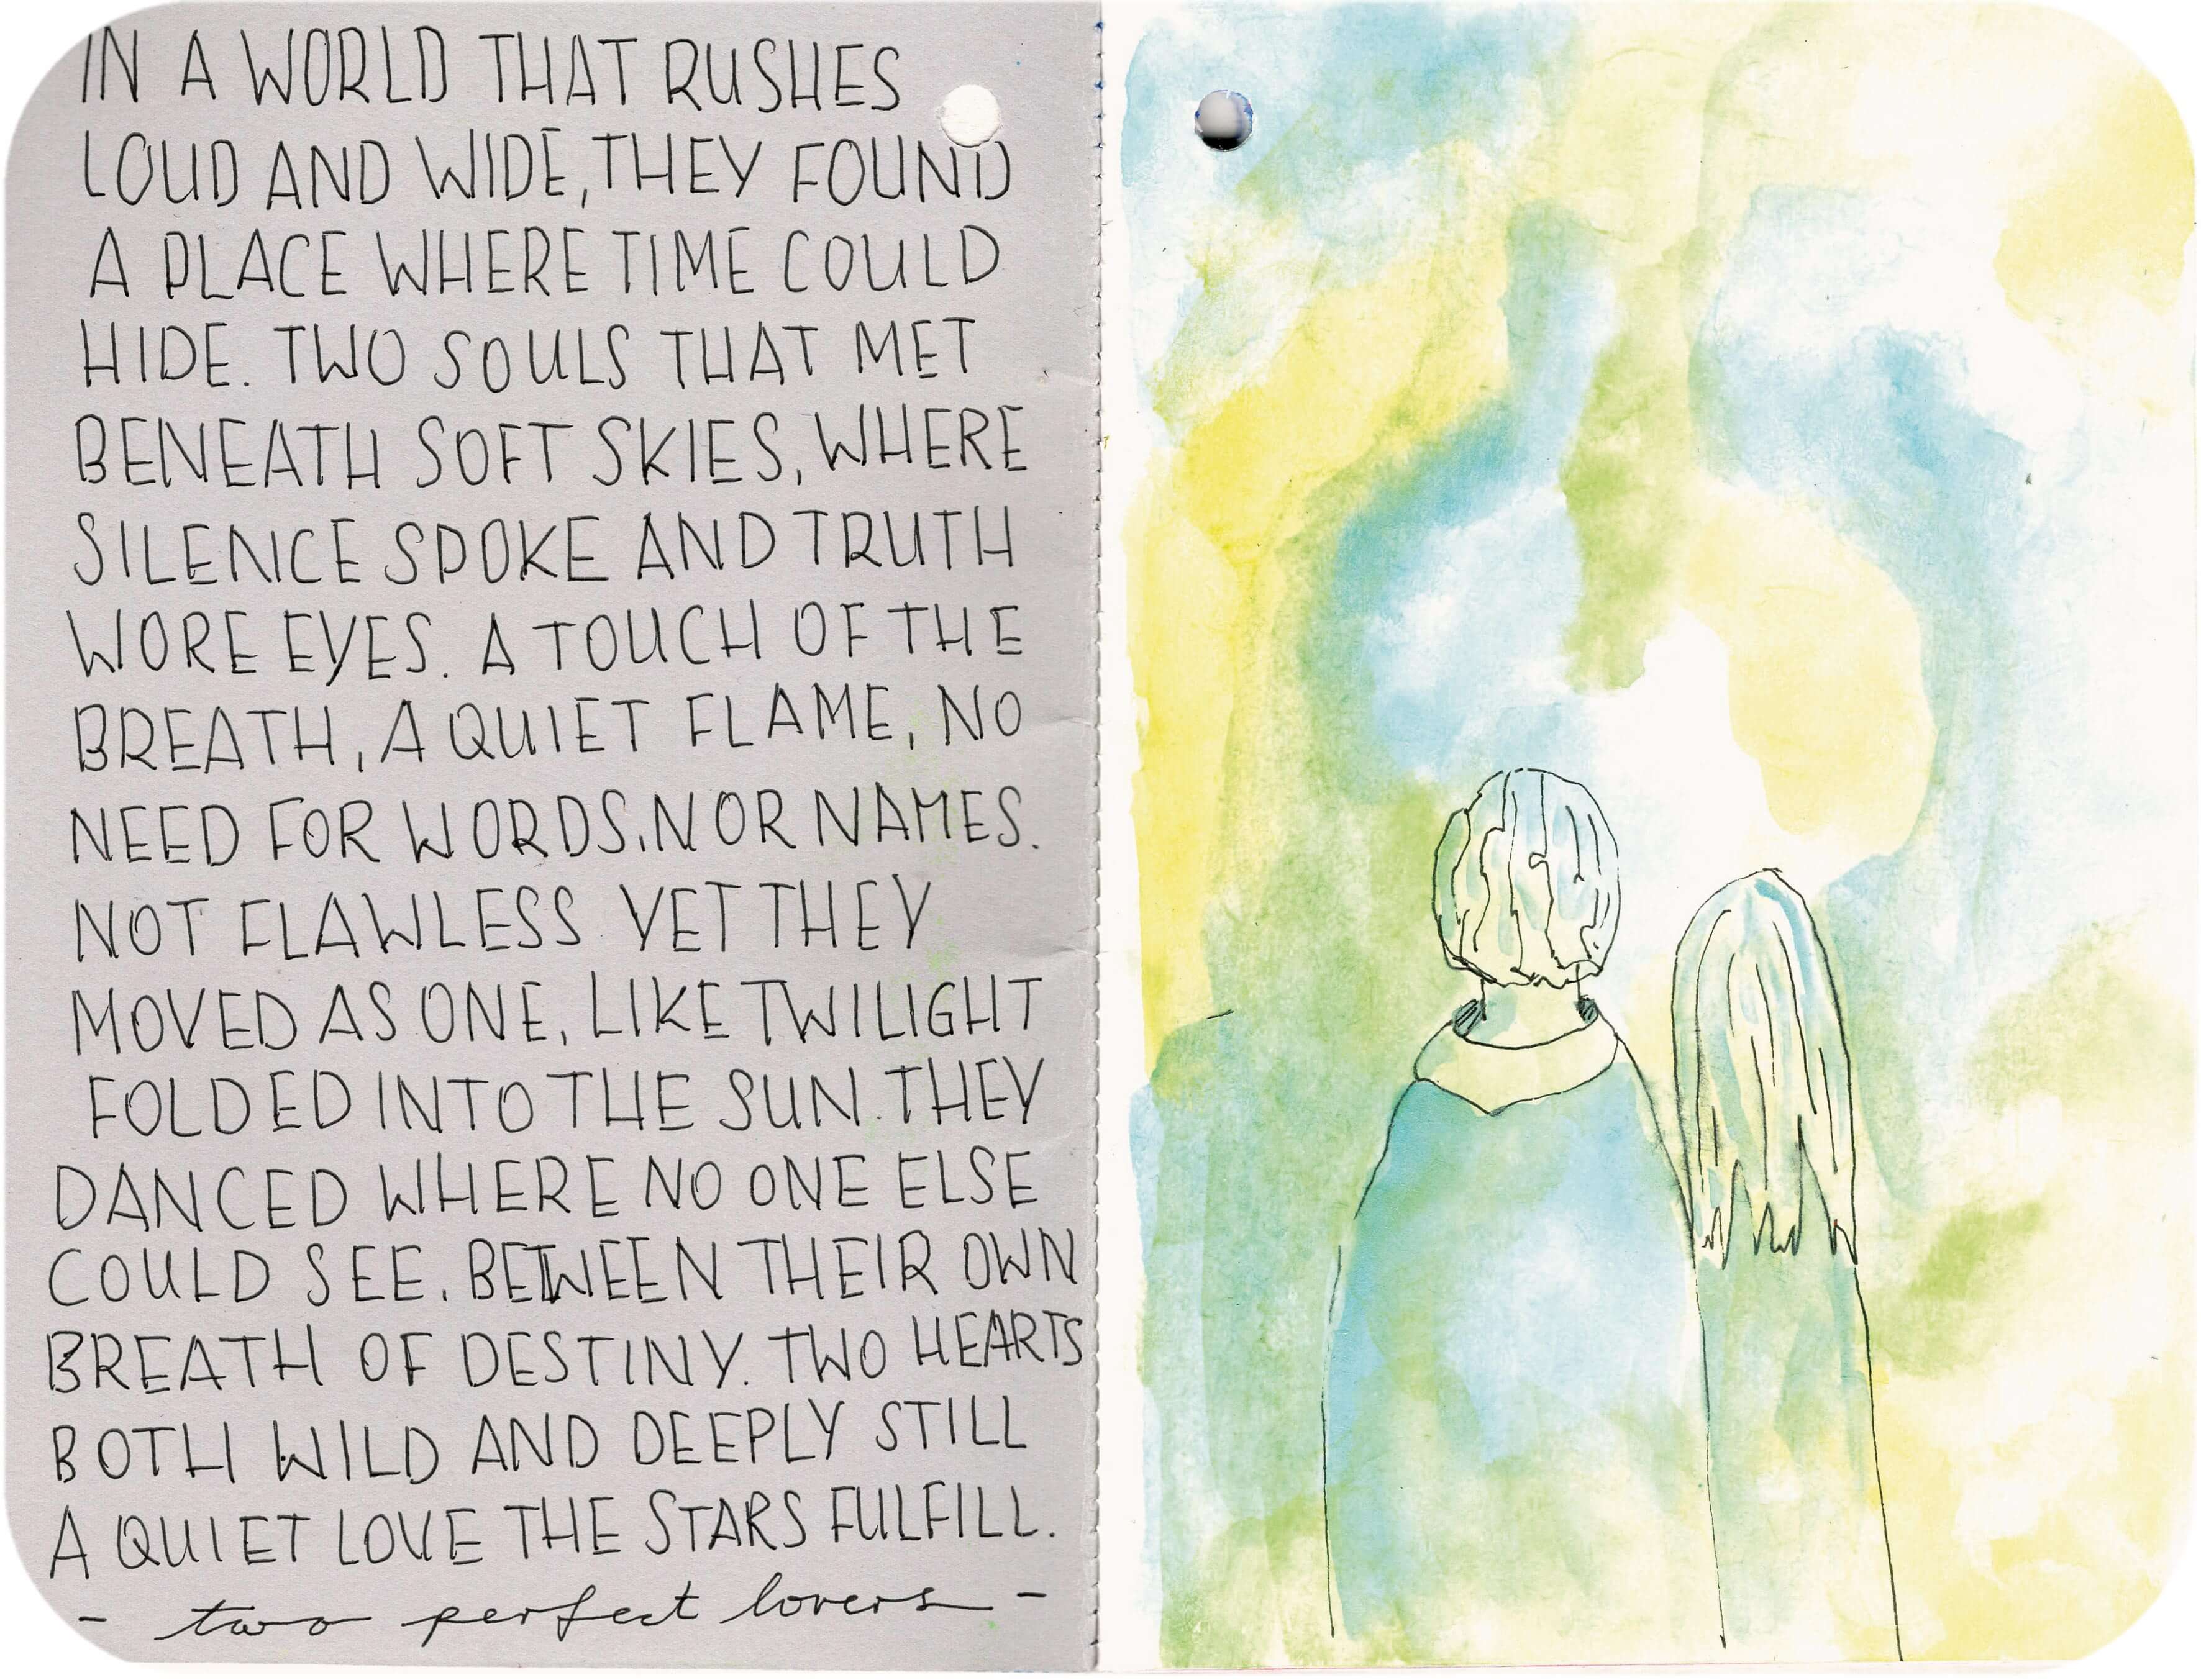 IN A WORLD THAT RUSHES
LOUD AND WIDE, THEY FOUND
A PLACE WHERE TIME COULD
HIDE. TWO SOULS THAT MET
BENEATH SOFT SKIES, WHERE
SILENCE SPOKE AND TRUTH
WORE EYES. A TOUCH OF THE
BREATH, A QUIET FLAME, NO
NEED FOR WORDS, NOR NAMES.
NOT FLAWLESS YET THEY
MOVED AS ONE, LIKE TWILIGHT
FOLDED INTO THE SUN. THEY
DANCED WHERE NO ONE ELSE
COULD SEE. BETWEEN THEIR OWN
BREATH OF DESTINY. TWO HEARTS
BOTH WILD AND DEEPLY STILL
A QUIET LOVE THE STARS FULFILL.
- two perfect lovers -